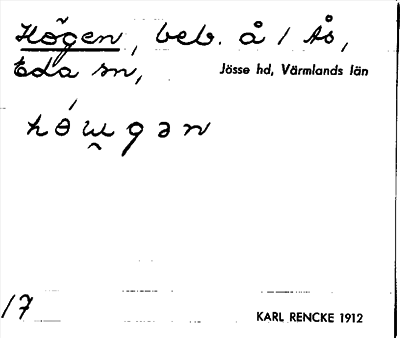 Högen, beb. å 1 Ås,
Eda sn, Jösse hd, Värmlands län
17 KARL RENCKE 1912